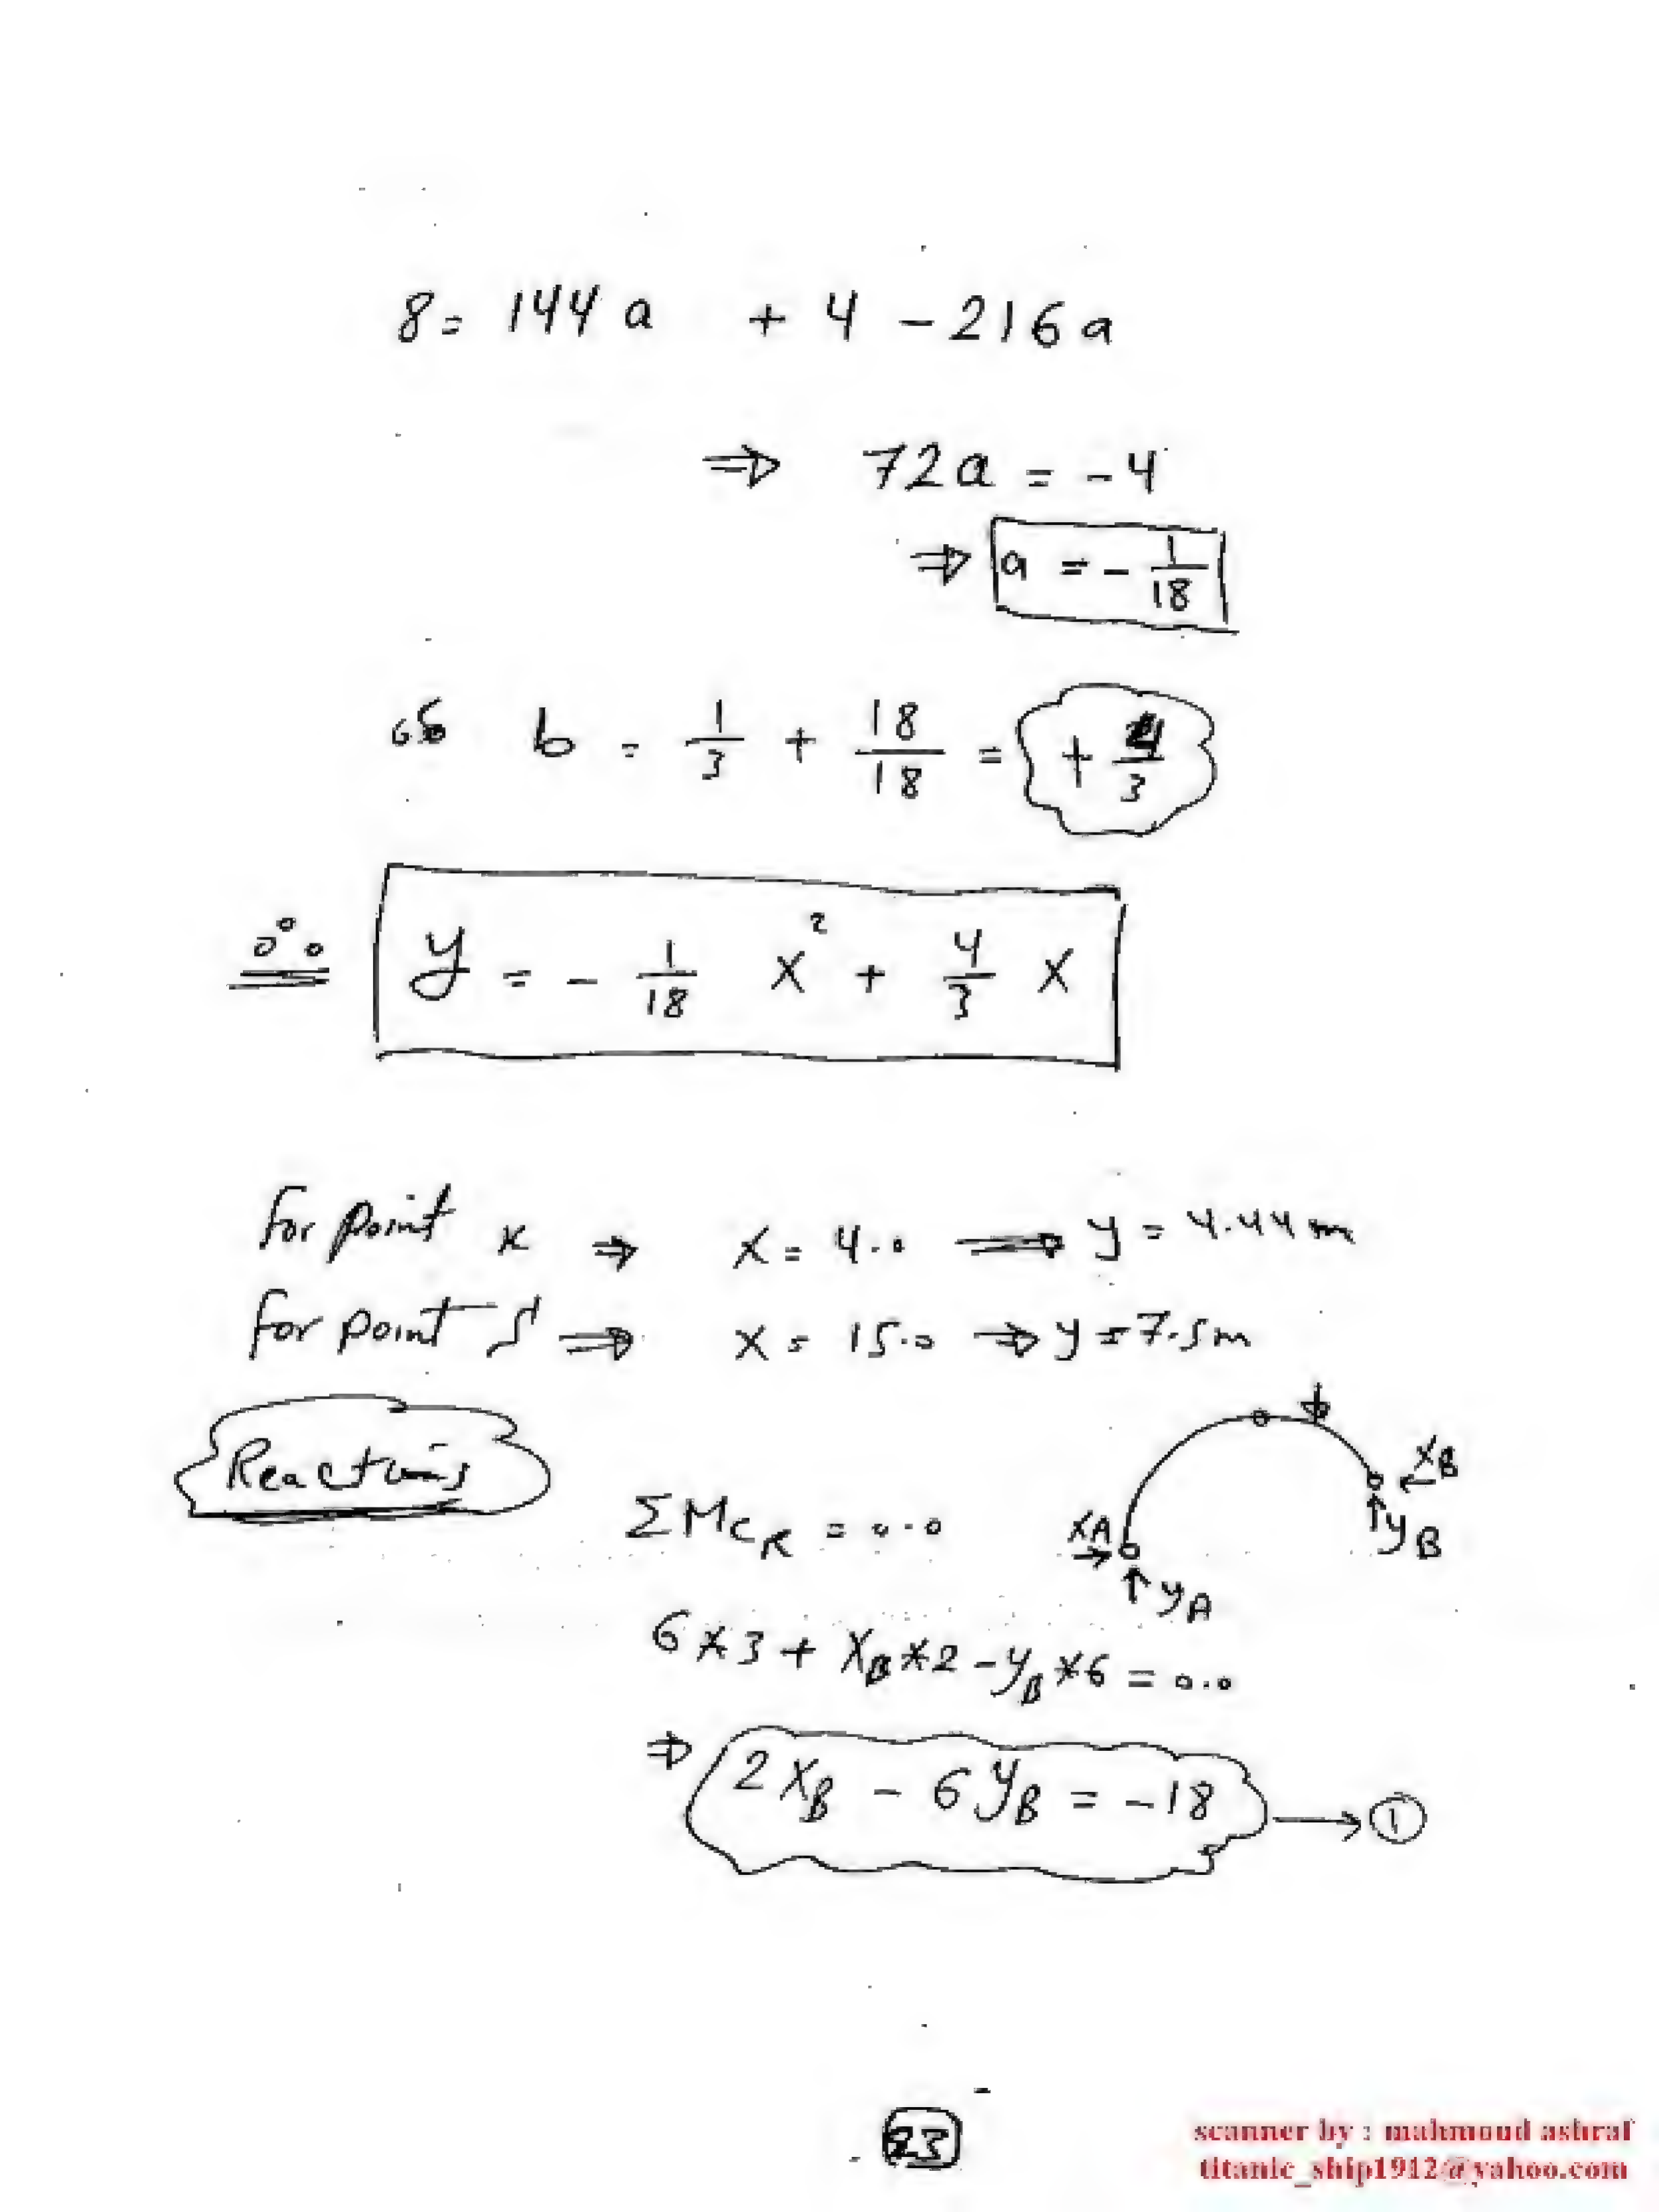 8 = 144 a + 4 - 216 a
⇒ 72 a = - 4
⇒ a = - 1/18
∴ b = 1/3 + 18/18 = + 4/3
∴ y = - 1/18 x² + 4/3 x
For point K ⇒ X = 4.0 ⟹ y = 4.44 m
for point S ⇒ X = 15.0 ⇒ y = 7.5 m
Reactions
XB
yB
XA
yA
ΣM_CR = 0.0
6 * 3 + XB * 2 - yB * 6 = 0.0
⇒ 2 XB - 6 yB = -18 → ①
23
scanner by : mahmoud ashraf
titanic_ship1912@yahoo.com